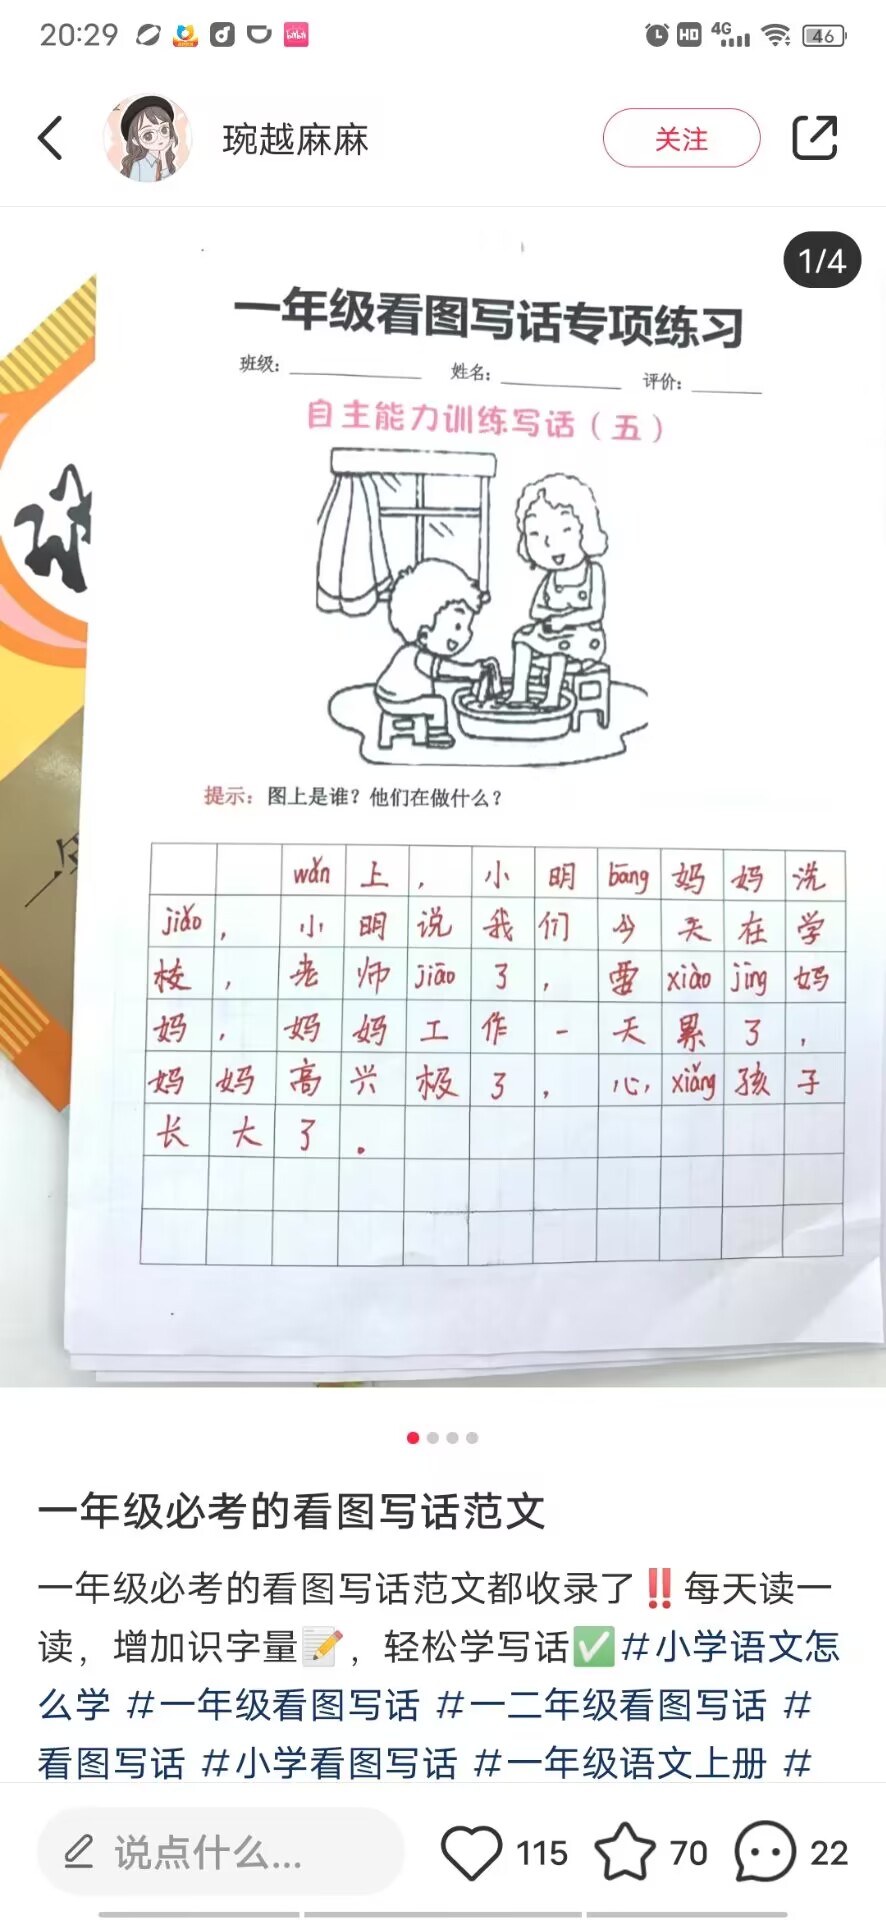 20:29
HD 4G 46
琬越麻麻
关注
1/4
一年级看图写话专项练习
班级: 姓名: 评价:
自主能力训练写话（五）
提示：图上是谁？他们在做什么？
wǎn上，小明bāng妈妈洗
jiǎo，小明说我们今天在学
校，老师jiāo了，要xiào jìng妈
妈，妈妈工作一天累了，
妈妈高兴极了，心，xiǎng孩子
长大了。
一年级必考的看图写话范文
一年级必考的看图写话范文都收录了‼️每天读一
读，增加识字量📝，轻松学写话✅#小学语文怎
么学 #一年级看图写话 #一二年级看图写话 #
看图写话 #小学看图写话 #一年级语文上册 #
说点什么...
115
70
22